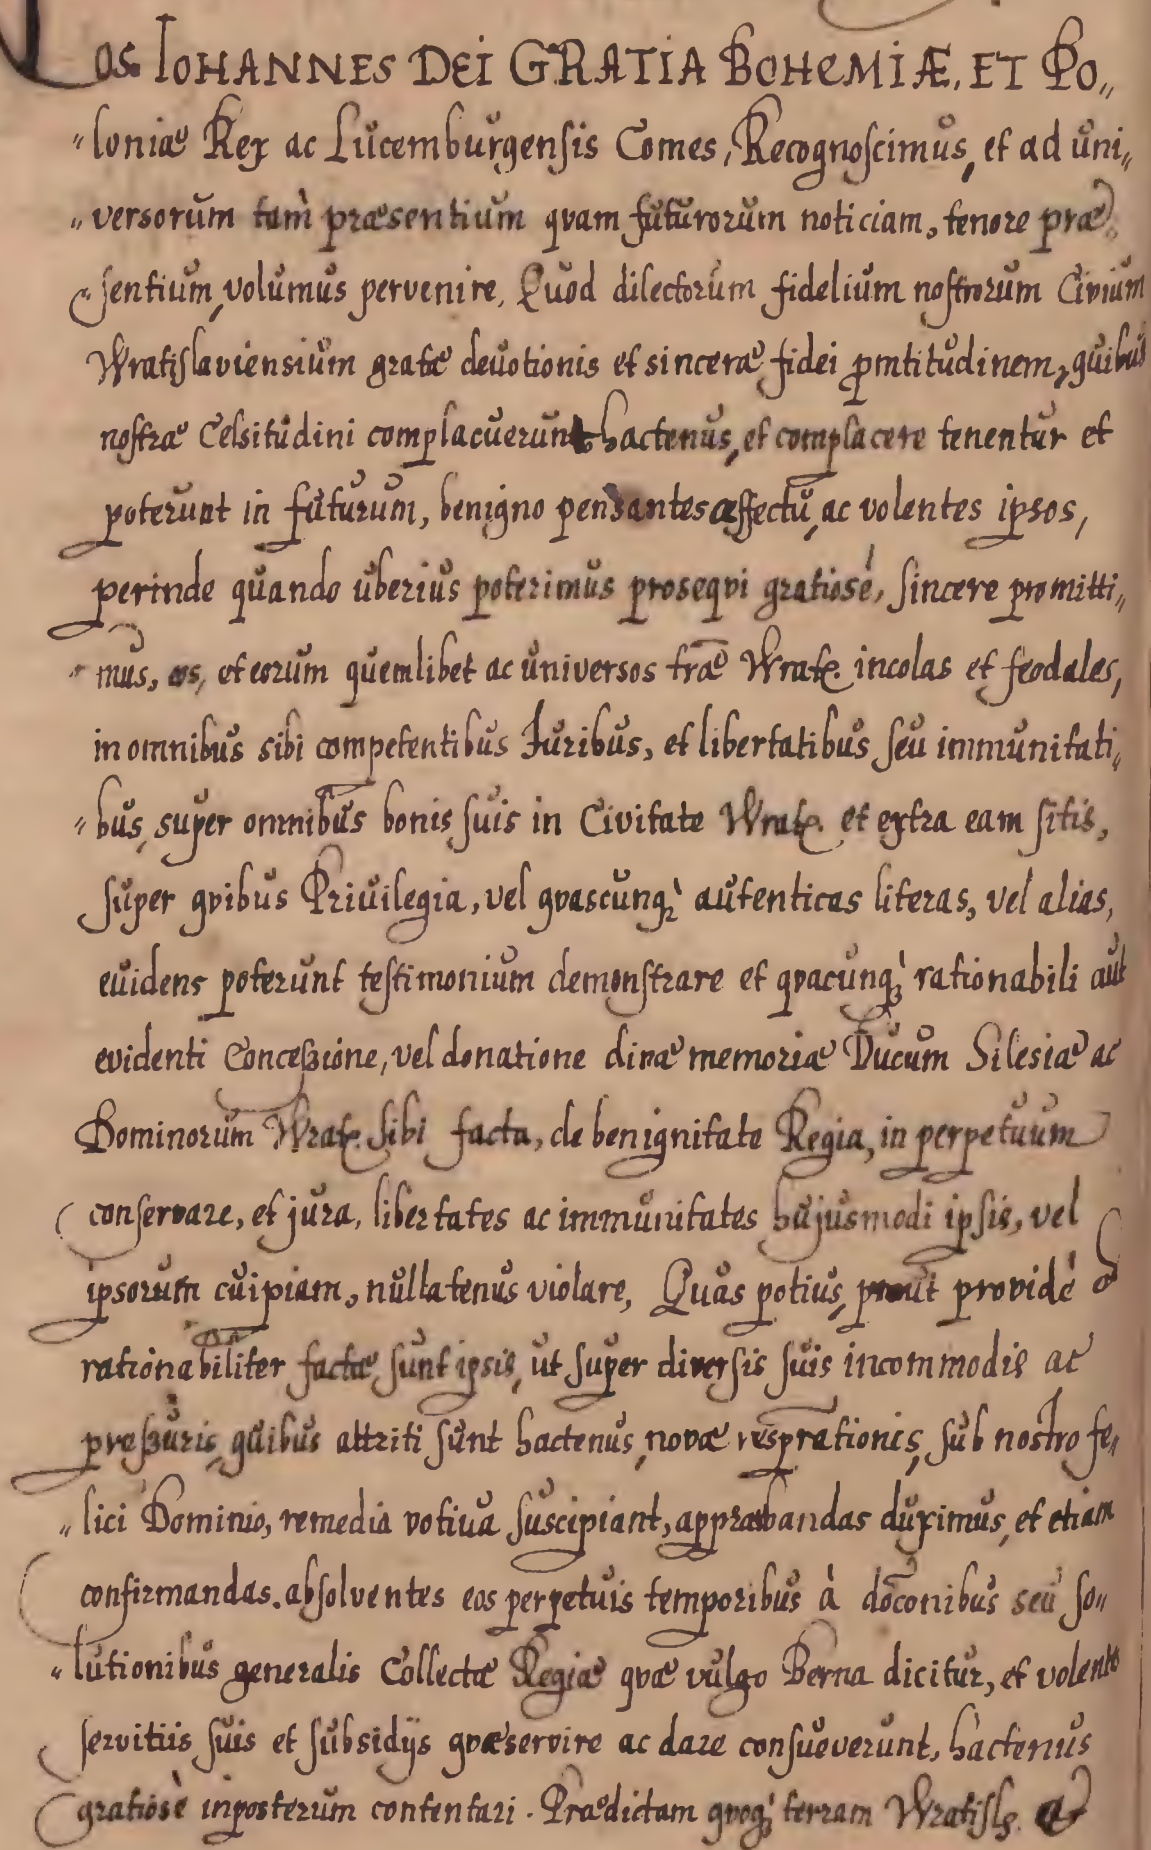 os IOHANNES DEI GRATIA BOHEMIÆ, ET PO„
„loniæ Rex ac Lucemburgensis Comes, Recognoscimus, et ad uni„
„versorum tam præsentium qvam futurorum noticiam, tenore præ„
„sentium, volumus pervenire, Quod dilectorum fidelium nostrorum Civium
Wratislaviensium gratæ deuotionis et sinceræ fidei pmtitudinem, quibus
nostræ Celsitudini complacuerunt hactenus, et complacere tenentur et
poterunt in futurum, benigno pensantes affectu, ac volentes ipsos,
perinde quando uberius poterimus proseqvi gratiosé, sincere promitti„
„mus, eos, et eorum quemlibet ac universos træ Wrat. incolas et feodales,
in omnibus sibi competentibus Juribus, et libertatibus seu immunitati„
„bus, super omnibus bonis suis in Civitate Wrat. et extra eam sitis,
super qvibus Priuilegia, vel qvascunq; autenticas literas, vel alias,
euidens poterunt testimonium demonstrare et qvacunq; rationabili aut
evidenti Conceßione, vel donatione divæ memoriæ Ducum Silesiæ ac
Dominorum Wrat. sibi facta, de benignitate Regia, in perpetuum
conservare, et jura, libertates ac immunitates hujusmodi ipsis, vel
ipsorum cuipiam, nullatenus violare, Quas potius, prout providè &
rationabiliter factæ sunt ipsis, ut super diversis suis incommodis ac
preßuris, quibus attriti sunt hactenus, novæ respirationis, sub nostro fe„
„lici Dominio, remedia votiua suscipiant, approbandas duximus, et etiam
confirmandas. absolventes eos perpetuis temporibus à doconibus seu so„
„lutionibus generalis Collectæ Regiæ qvæ vulgo Berna dicitur, et volentes
servitiis suis et subsidijs qvæ servire ac dare consueverunt, hactenus
gratiosè inposterum contentari. Prædictam qvoq; terram Wratisl. &